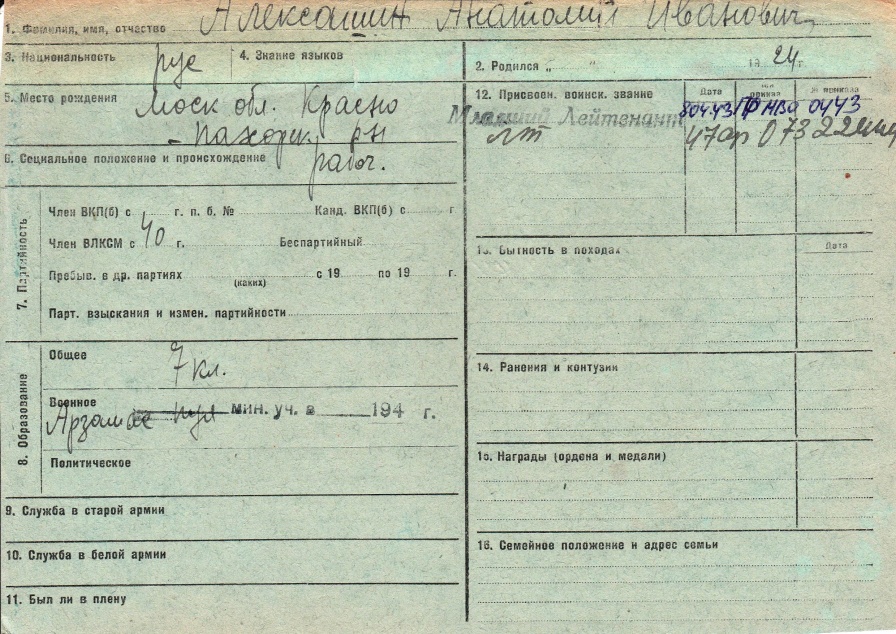 1. Фамилия, имя, отчество Алексашин Анатолий Иванович
3. Национальность рус
4. Знание языков
5. Место рождения Моск обл. Красно
-пахорск. р-н
6. Социальное положение и происхождение рабоч.
7. Партийность
Член ВКП(б) с г. п. б. № Канд. ВКП(б) с г
Член ВЛКСМ с 40 г. Беспартийный
Пребыв. в др. партиях с 19 по 19 г.
(каких)
Парт. взыскания и измен. партийности
8. Образование
Общее 7 кл.
Военное
Арзамас мин. уч. в 194 г.
Политическое
9. Служба в старой армии
10. Служба в белой армии
11. Был ли в плену
2. Родился „ “ 1924г
12. Присвоен. воинск. звание Дата чей приказ № приказа
Младший Лейтенант 0443
лт 073
13. Бытность в походах Дата
14. Ранения и контузии
15. Награды (ордена и медали)
16. Семейное положение и адрес семьи